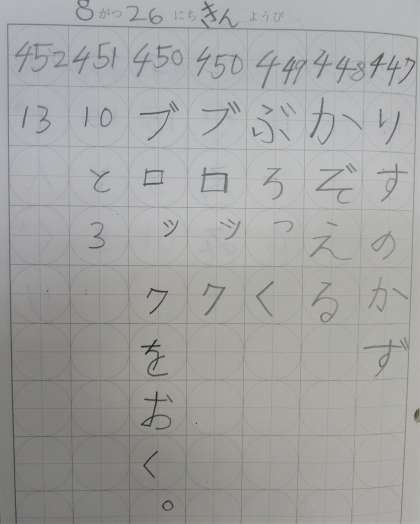 8がつ26にちきんようび
447りすのかず
448かぞえる
449ぶろっく
450ブロック
450ブロックをおく。
45110と3
45213